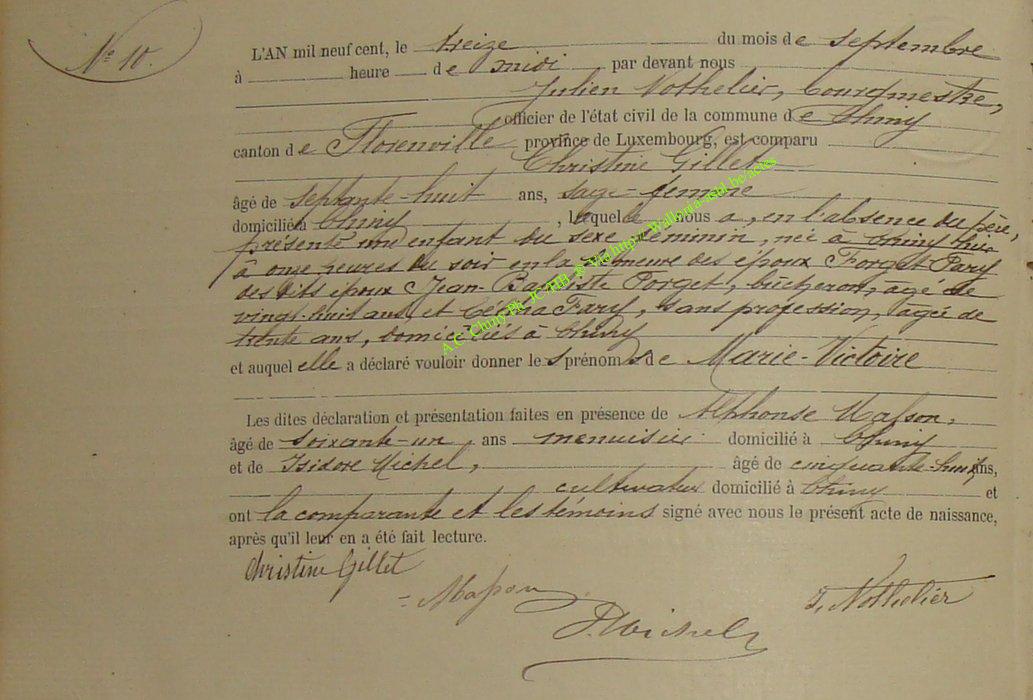 Nº 10.
L'AN mil neuf cent, le treize du mois de septembre
à heure de midi par devant nous
Julien Nothelier, bourgmestre,
officier de l'état civil de la commune de Chiny
canton de Florenville province de Luxembourg, est comparu
Christine Gillet
âgé de septante-huit ans, sage-femme
domicilié à Chiny, laquelle nous a, en l'absence du père,
présenté un enfant du sexe féminin, née à Chiny hier
à onze heures du soir en la demeure des époux Forget-Fary
des dits époux Jean-Baptiste Forget, bûcheron, âgé de
vingt-huit ans et Fary, sans profession, âgée de
trente ans, domiciliés à Chiny
et auquel elle a déclaré vouloir donner les prénoms de Marie-Victoire
Les dites déclaration et présentation faites en présence de Alphonse Masson,
âgé de soixante-un ans menuisier domicilié à Chiny
et de Isidore Michel, âgé de cinquante-huit ans,
cultivateur domicilié à Chiny et
ont la comparante et les témoins signé avec nous le présent acte de naissance,
après qu'il leur en a été fait lecture.
Christine Gillet
Masson
J. Nothelier
I Michel
A.C. Chiny Ph. JC/HB © Via http:// Wallonia-asbl.be/actes